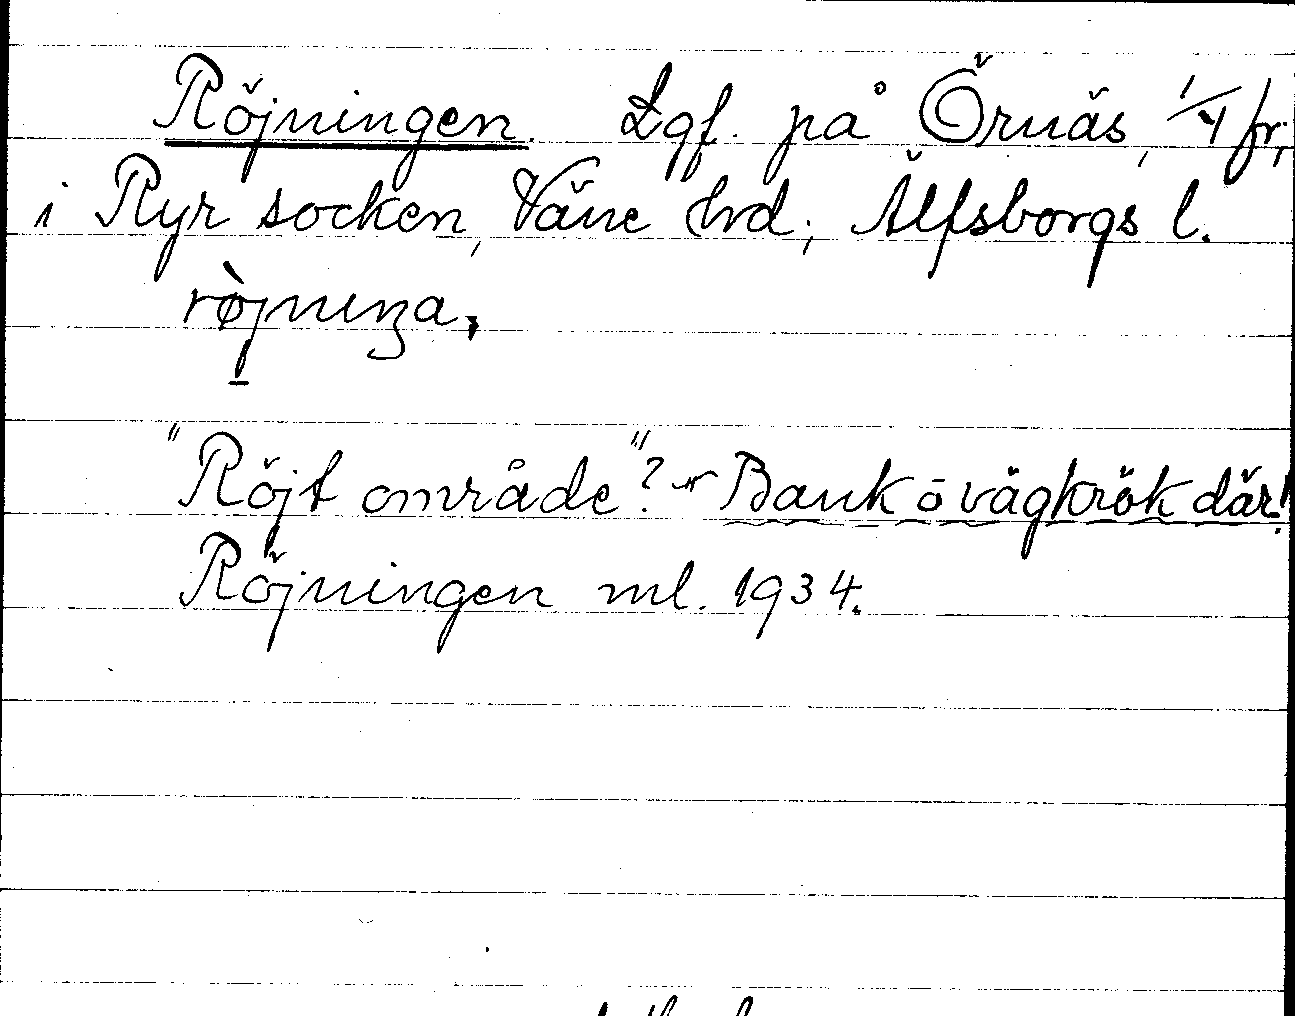 Röjningen. Lgf. på Örnäs, 1/4 fr,
i Ryr socken, Väne hrd; Älfsborgs l.
rø̀jnıŋa,
"Röjt område"? Bank o vägkrök där!
Röjningen ml. 1934.